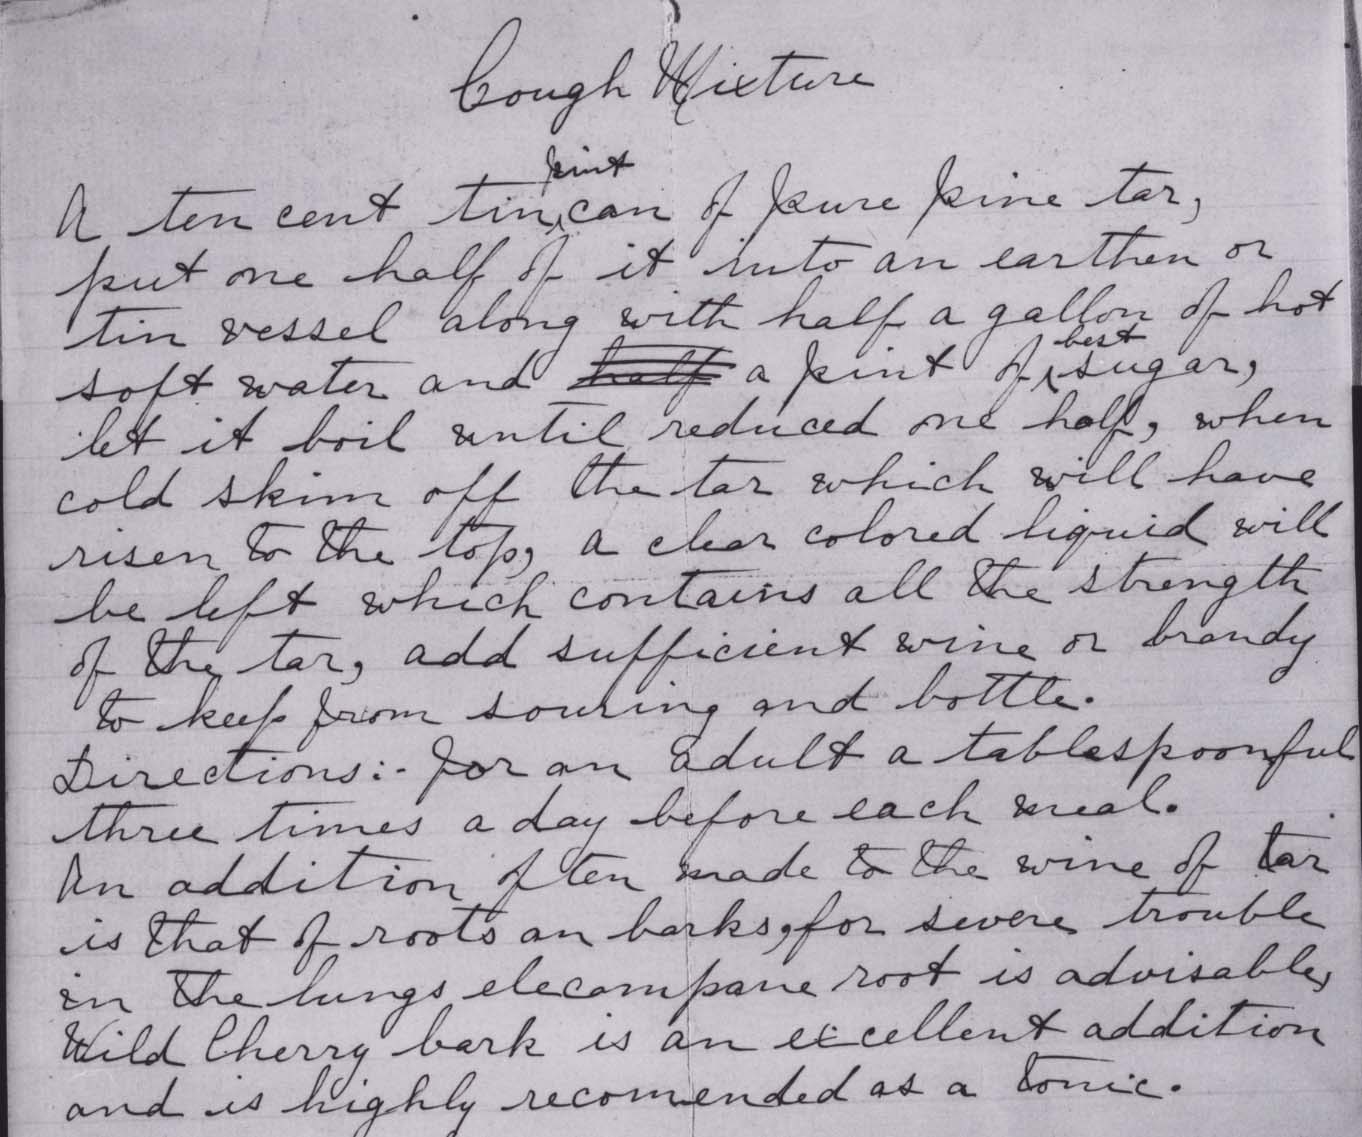 Cough Mixture
A ten cent tin pint can of pure pine tar,
put one half of it into an earthen or
tin vessel along with half a gallon of hot
soft water and half a pint of best sugar,
let it boil until reduced one half, when
cold skim off the tar which will have
risen to the top, a clear colored liquid will
be left which contains all the strength
of the tar, add sufficient wine or brandy
to keep from souring and bottle.
Directions:- for an adult a tablespoonful
three times a day before each meal.
An addition often made to the wine of tar
is that of roots an barks, for severe trouble
in the lungs elecampane root is advisable,
Wild Cherry bark is an excellent addition
and is highly recomended as a tonic.